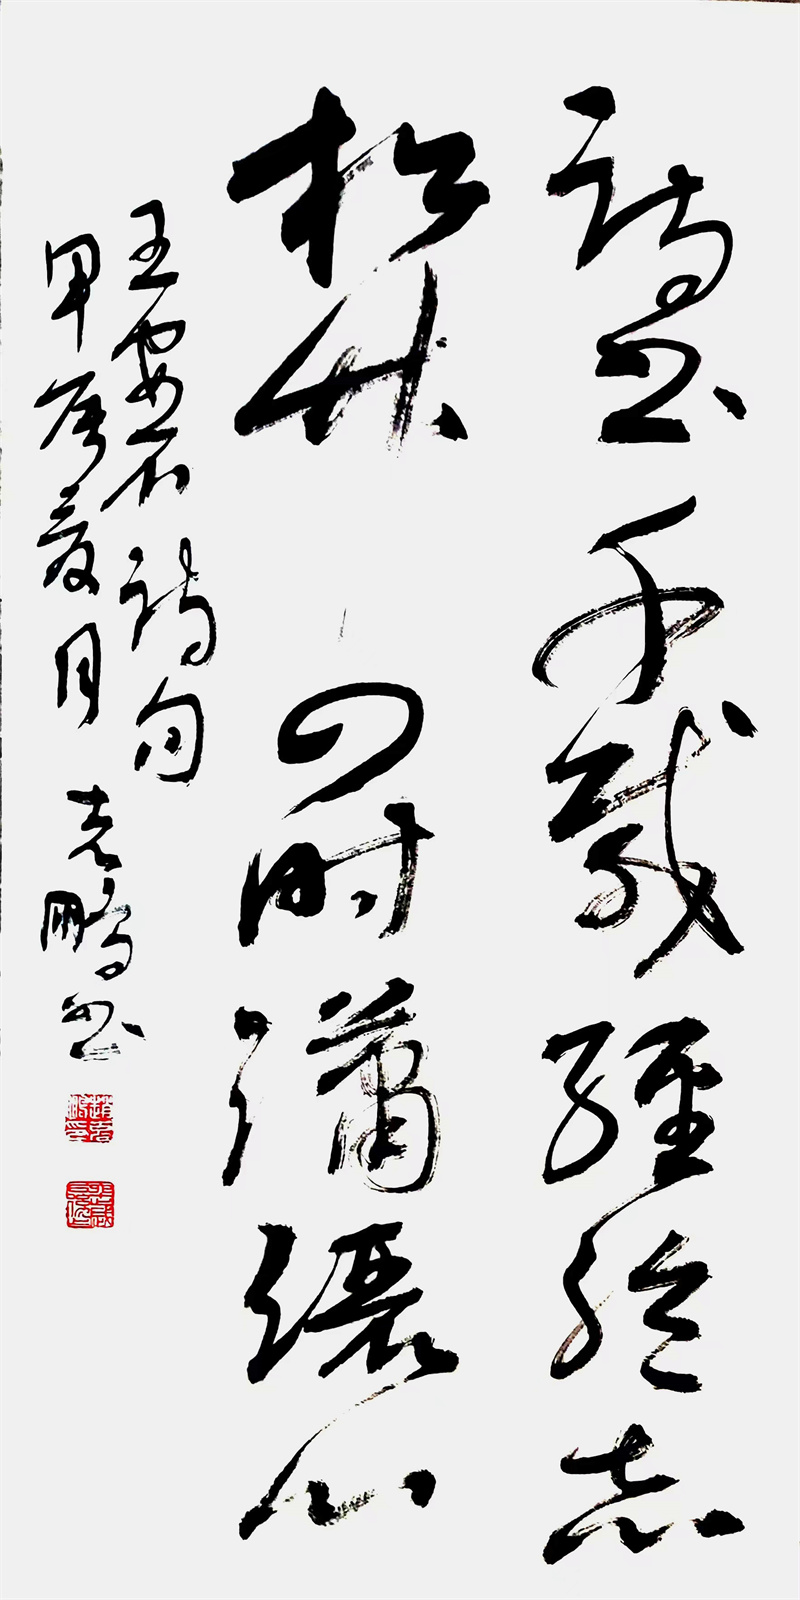 詩書千載經綸志
松竹四時瀟灑心
王安石詩句
甲辰夏月 志鵬書